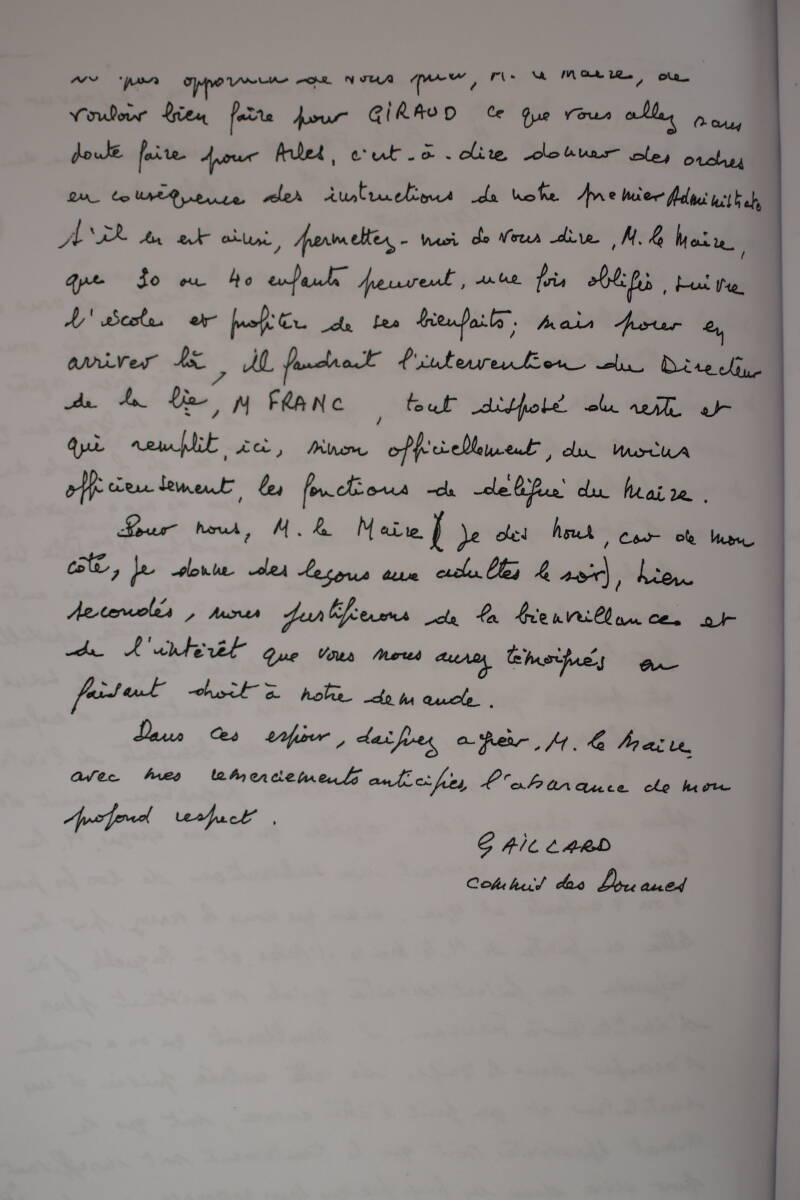 pas opportun de vous prier, M. le Maire, de
vouloir bien faire pour GIRAUD ce que vous allez sans
doute faire pour Arles, c'est-à-dire donner des ordres
en conséquence des instructions de notre premier Administrat
S'il en est ainsi, permettez-moi de vous dire, M. le Maire,
que 30 ou 40 enfants peuvent, une fois obligés, suivre
l'école et profiter de ses bienfaits; mais pour en
arriver là, il faudrait l'intervention du Directeur
de la Cie, M FRANC, tout disposé du reste et
qui remplit, ici, sinon officiellement, du moins
officieusement, les fonctions de délégué du Maire.
Pour nous, M. le Maire (je dis nous, car de mon
côté, je donne des leçons aux adultes le soir), bien
secondés, nous justifierons de la bienveillance et
de l'intérêt que vous nous aurez témoignés en
faisant droit à notre demande.
Dans cet espoir, daignez agréer, M. le Maire,
avec mes remerciements anticipés, l'assurance de mon
profond respect.
GAILLARD
commis des Douanes